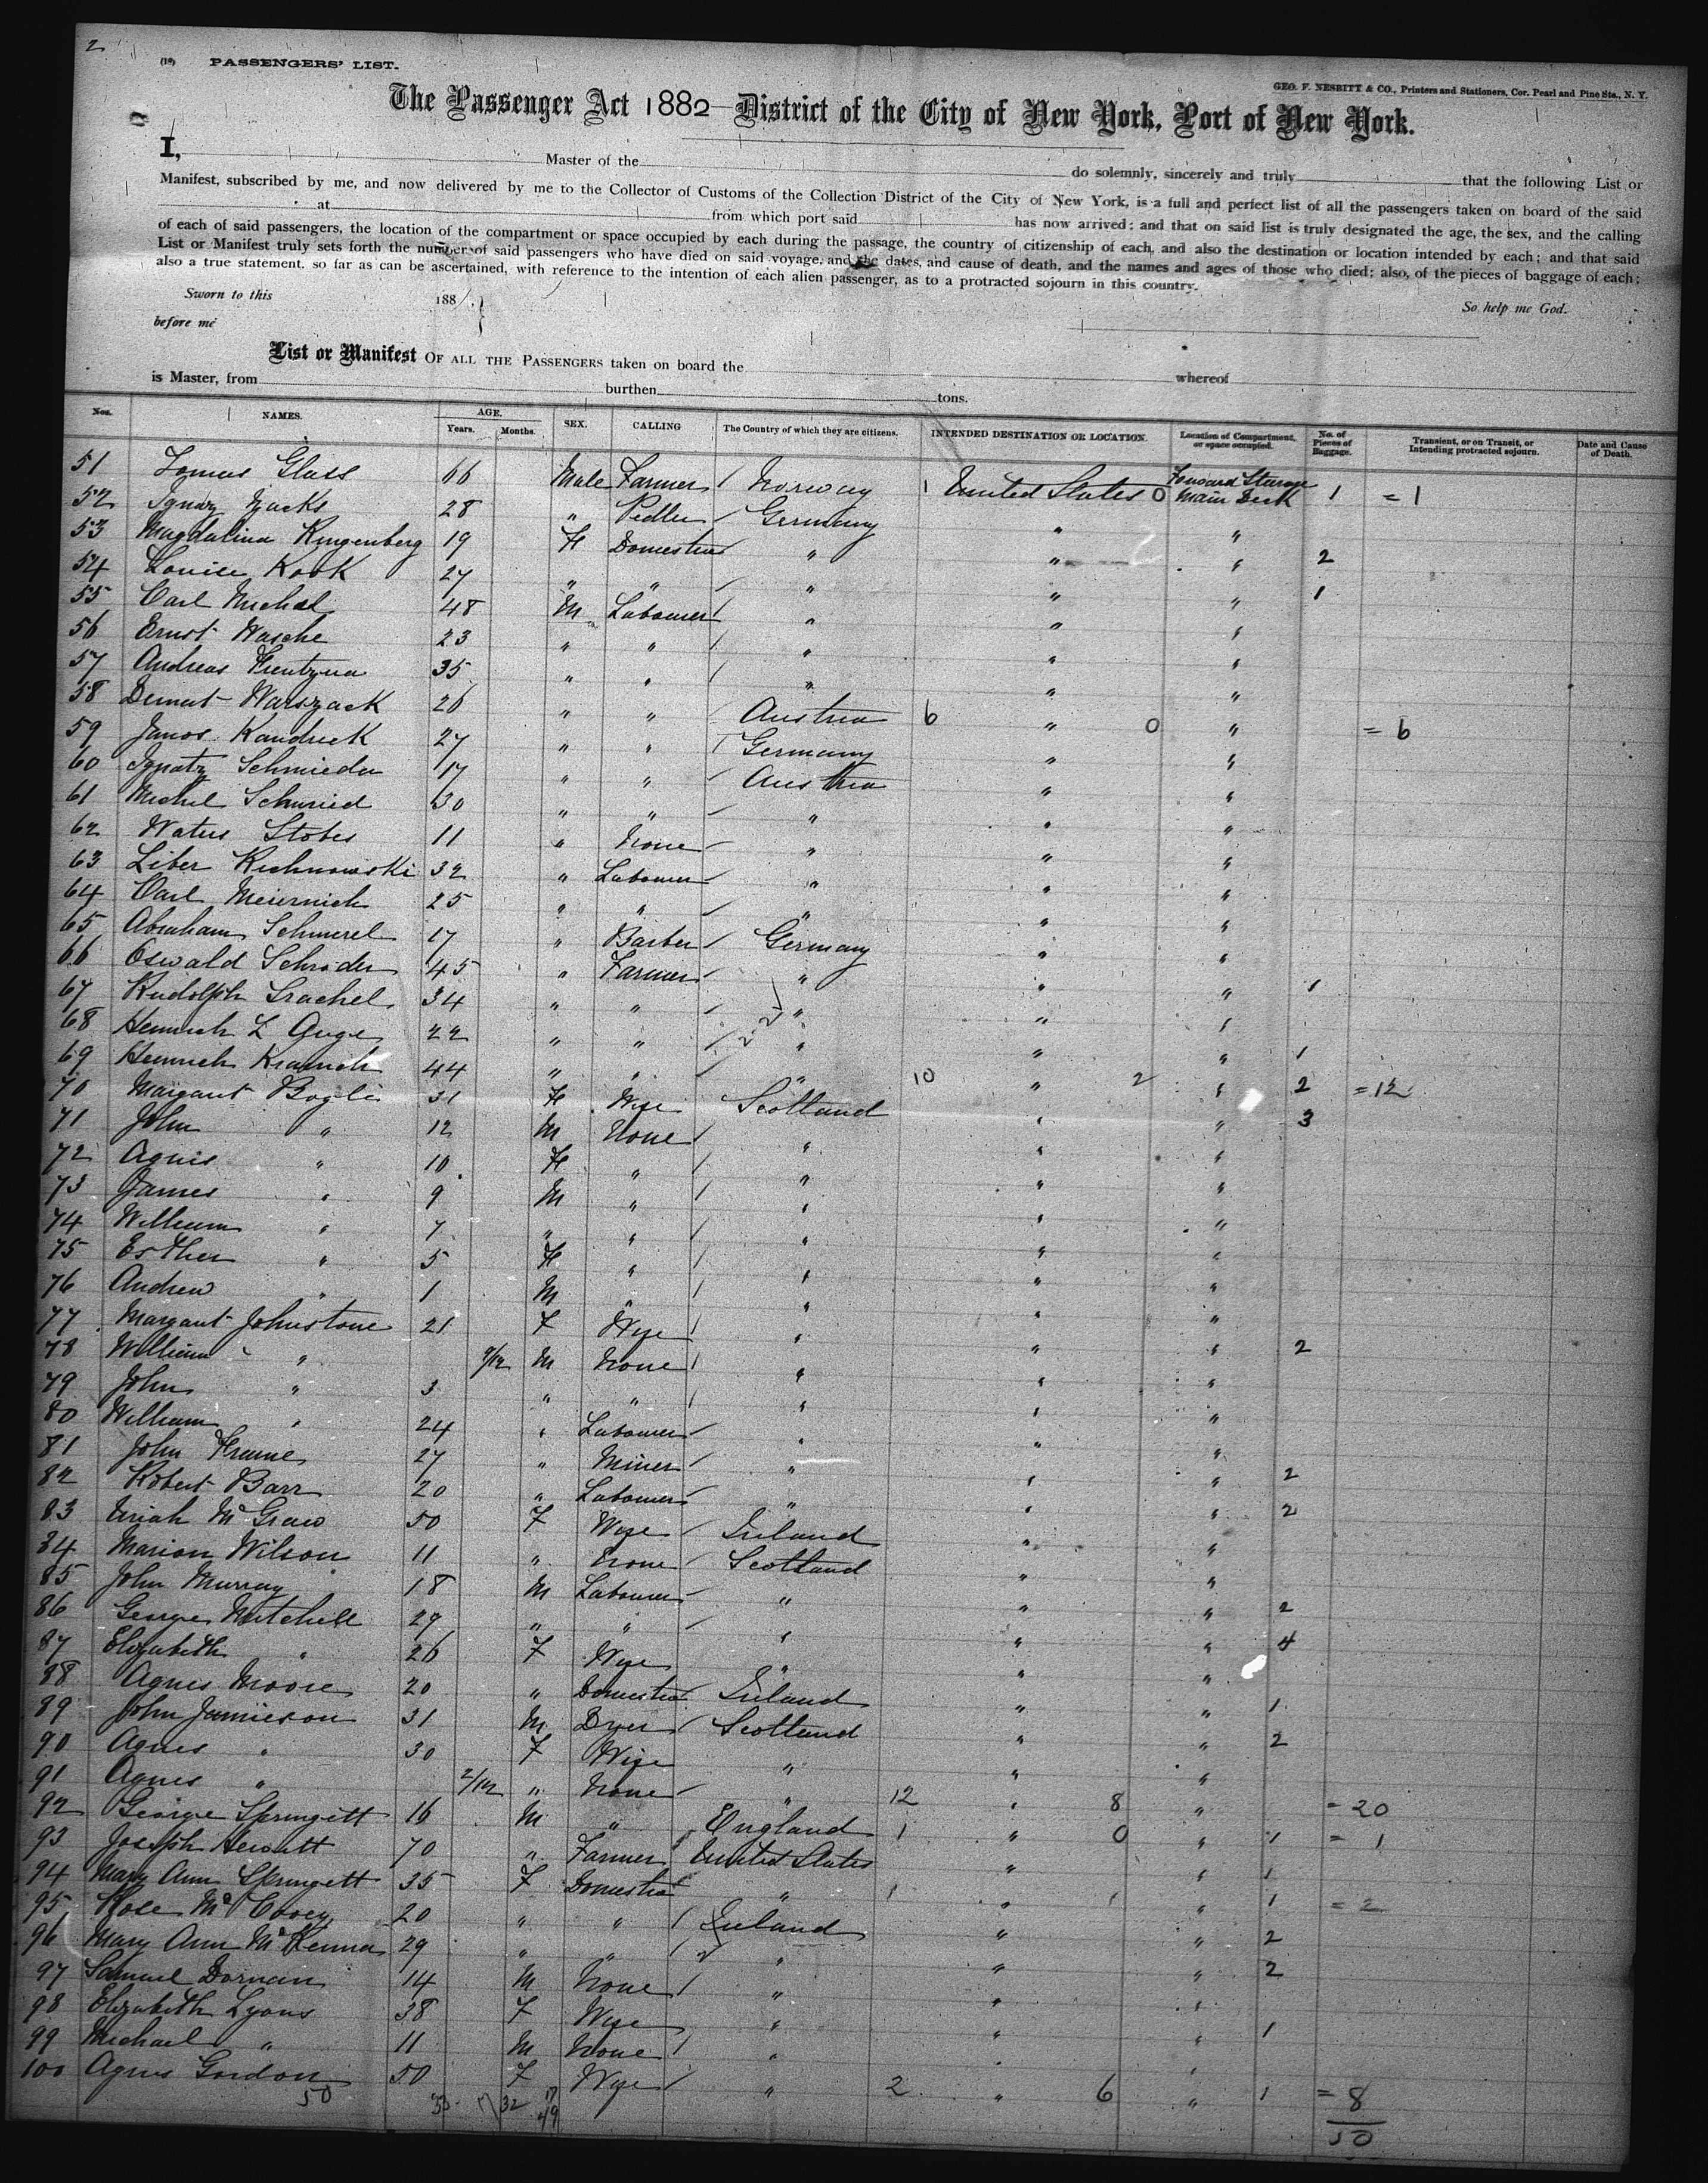 2
(19) PASSENGERS' LIST.
GEO. F. NESBITT & CO., Printers and Stationers, Cor. Pearl and Pine Sts., N. Y.
The Passenger Act 1882 District of the City of New York, Port of New York.
I, Master of the do solemnly, sincerely and truly that the following List or
Manifest, subscribed by me, and now delivered by me to the Collector of Customs of the Collection District of the City of New York, is a full and perfect list of all the passengers taken on board of the said
at from which port said has now arrived; and that on said list is truly designated the age, the sex, and the calling
of each of said passengers, the location of the compartment or space occupied by each during the passage, the country of citizenship of each, and also the destination or location intended by each; and that said
List or Manifest truly sets forth the number of said passengers who have died on said voyage, and the dates, and cause of death, and the names and ages of those who died; also, of the pieces of baggage of each;
also a true statement, so far as can be ascertained, with reference to the intention of each alien passenger, as to a protracted sojourn in this country.
Sworn to this 188 So help me God.
before me
List or Manifest OF ALL THE PASSENGERS taken on board the whereof
is Master, from burthen tons.
Nos. NAMES. AGE. Years. Months. SEX. CALLING The Country of which they are citizens. INTENDED DESTINATION OR LOCATION. Location of Compartment, or space occupied. No. of Pieces of Baggage. Transient, or on Transit, or Intending protracted sojourn. Date and Cause of Death.
51 Glass 66 Male Farmer Norway 1 United States 0 Forward Steerage Main Deck 1 = 1
52 Ignaz 28 " Pedler Germany " "
53 Magdalina 19 F Domestic " " " 2
54 Louise Kook 27 " " " " " 1
55 Carl Michel 48 M Labourer " " "
56 Ernst Wasche 23 " " " " "
57 Andreas 35 " " " " "
58 Warszack 26 " " Austria 6 " 0 " = 6
59 Janos Kandrick 27 " " Germany " "
60 Ignatz Schmieder 17 " " Austria " "
61 Michel Schmied 30 " " " " "
62 Stobes 11 " None " " "
63 Liber Richnowski 32 " Labourer " " "
64 Carl Meiernich 25 " " " " "
65 Abraham Schmerel 17 " Barber Germany " "
66 Oswald Schroder 45 " Farmer " " " 1
67 Rudolph 34 " " " " "
68 Heinrich 22 " " " " " 1
69 Heinrich 44 " " " 10 " 2 " 2 = 12
70 Margaret Bogle 31 F Wife Scotland " " 3
71 John " 12 M None " " "
72 Agnis " 10 F " " " "
73 James " 9 M " " " "
74 William " 7 " " " " "
75 Esther " 5 F " " " "
76 Andrew " 1 M " " " "
77 Margaret Johnstone 21 F Wife " " " 2
78 William " 9/12 M None " " "
79 John " 3 " " " " "
80 William " 24 " Labourer " " "
81 John Frame 27 " Miner " " " 2
82 Robert Barr 20 " Labourer " " " 2
83 Uriah McGraw 50 F Wife Ireland " "
84 Marion Wilson 11 " None Scotland " "
85 John Murray 18 M Labourer " " " 2
86 George Mitchell 29 " " " " " 4
87 Elizabeth " 26 F Wife " " "
88 Agnes Moore 20 " Domestic Ireland " " 1
89 John Jamieson 31 M Dyer Scotland " " 2
90 Agnes " 30 F Wife " " "
91 Agnes " 2/12 " None " 12 " 8 " = 20
92 George Springett 16 M " England 1 " 0 " 1 = 1
93 Joseph Hewitt 70 " Farmer United States " " 1
94 Mary Ann Springett 35 F Domestic " 1 " 1 " 1 = 2
95 Rose McCovey 20 " " Ireland " " 2
96 Mary Ann McKenna 29 " " " " " 2
97 Samuel Dornan 14 M None " " "
98 Elizabeth Lyons 38 F Wife " " " 1
99 Michael " 11 M None " " "
100 Agnes Gordon 50 F Wife " 2 " 6 " 1 = 8
50 32 17 49 50